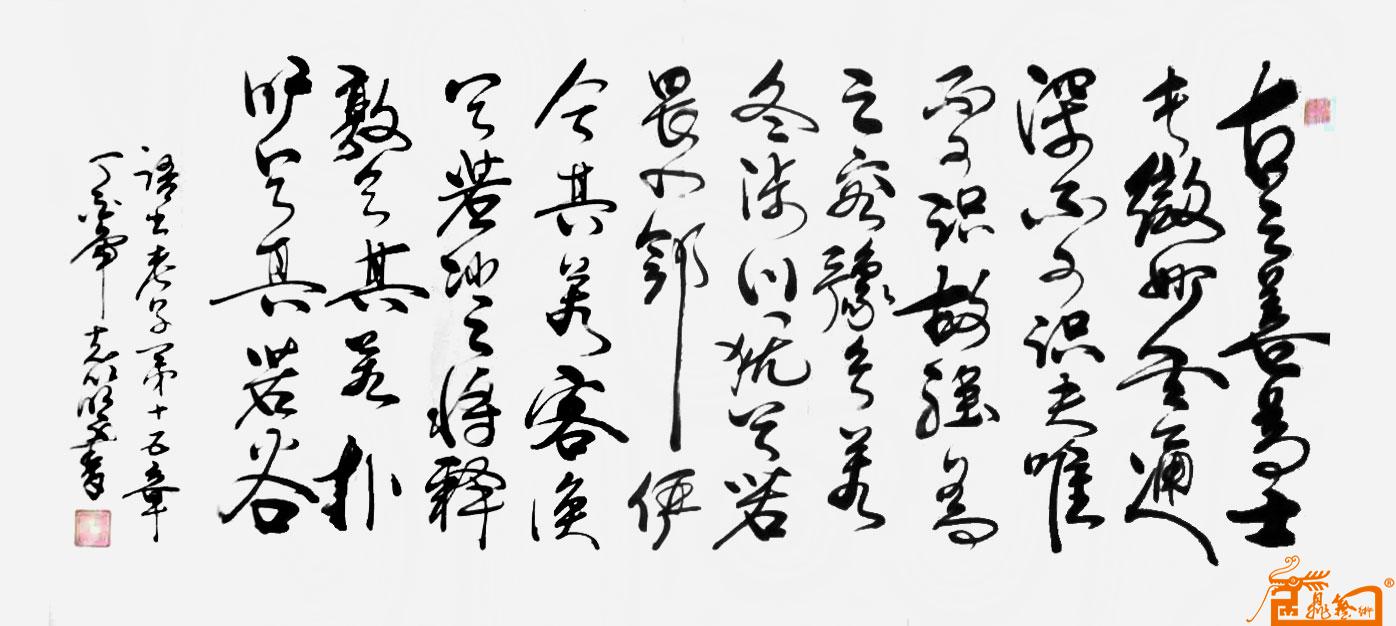 古之善為士
者微妙玄通
深不可识夫唯
而可识故强為
之容豫兮若
冬涉川犹兮若
畏四邻俨
兮其若客涣
兮若冰之将释
敦兮其若朴
旷兮其若谷
语出老子第十五章
丁